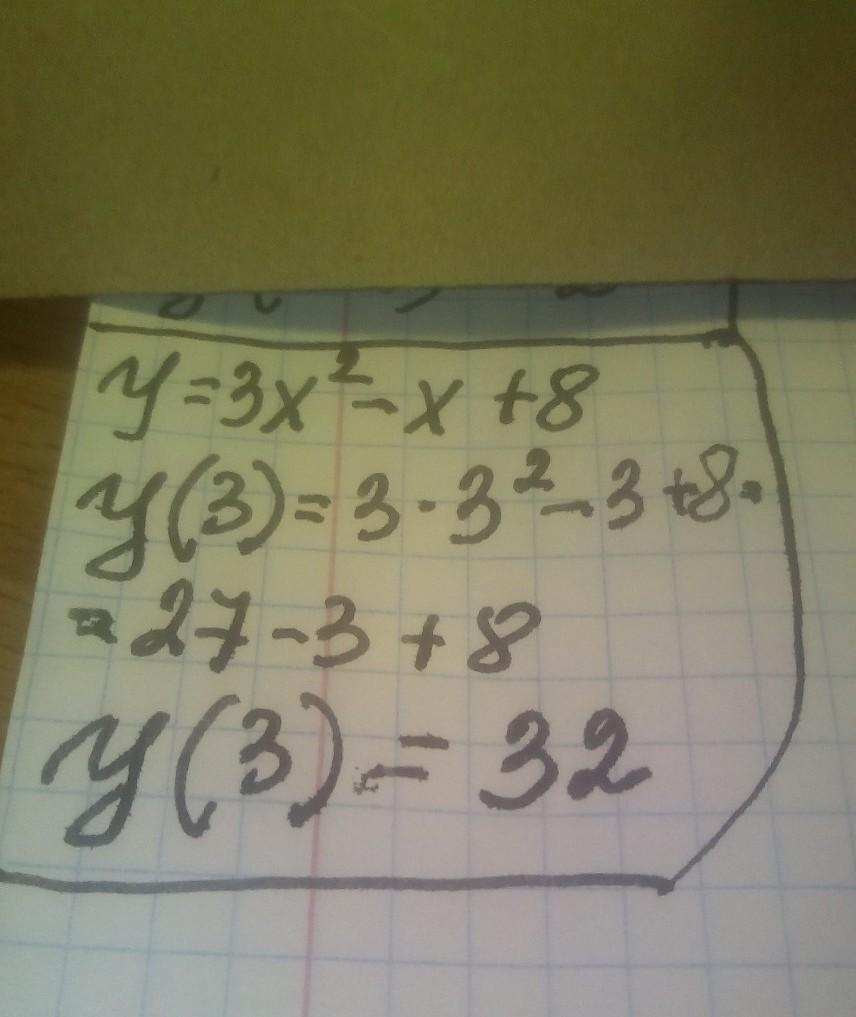 y=3x²-x+8
y(3)=3·3²-3+8=
=27-3+8
y(3)=32